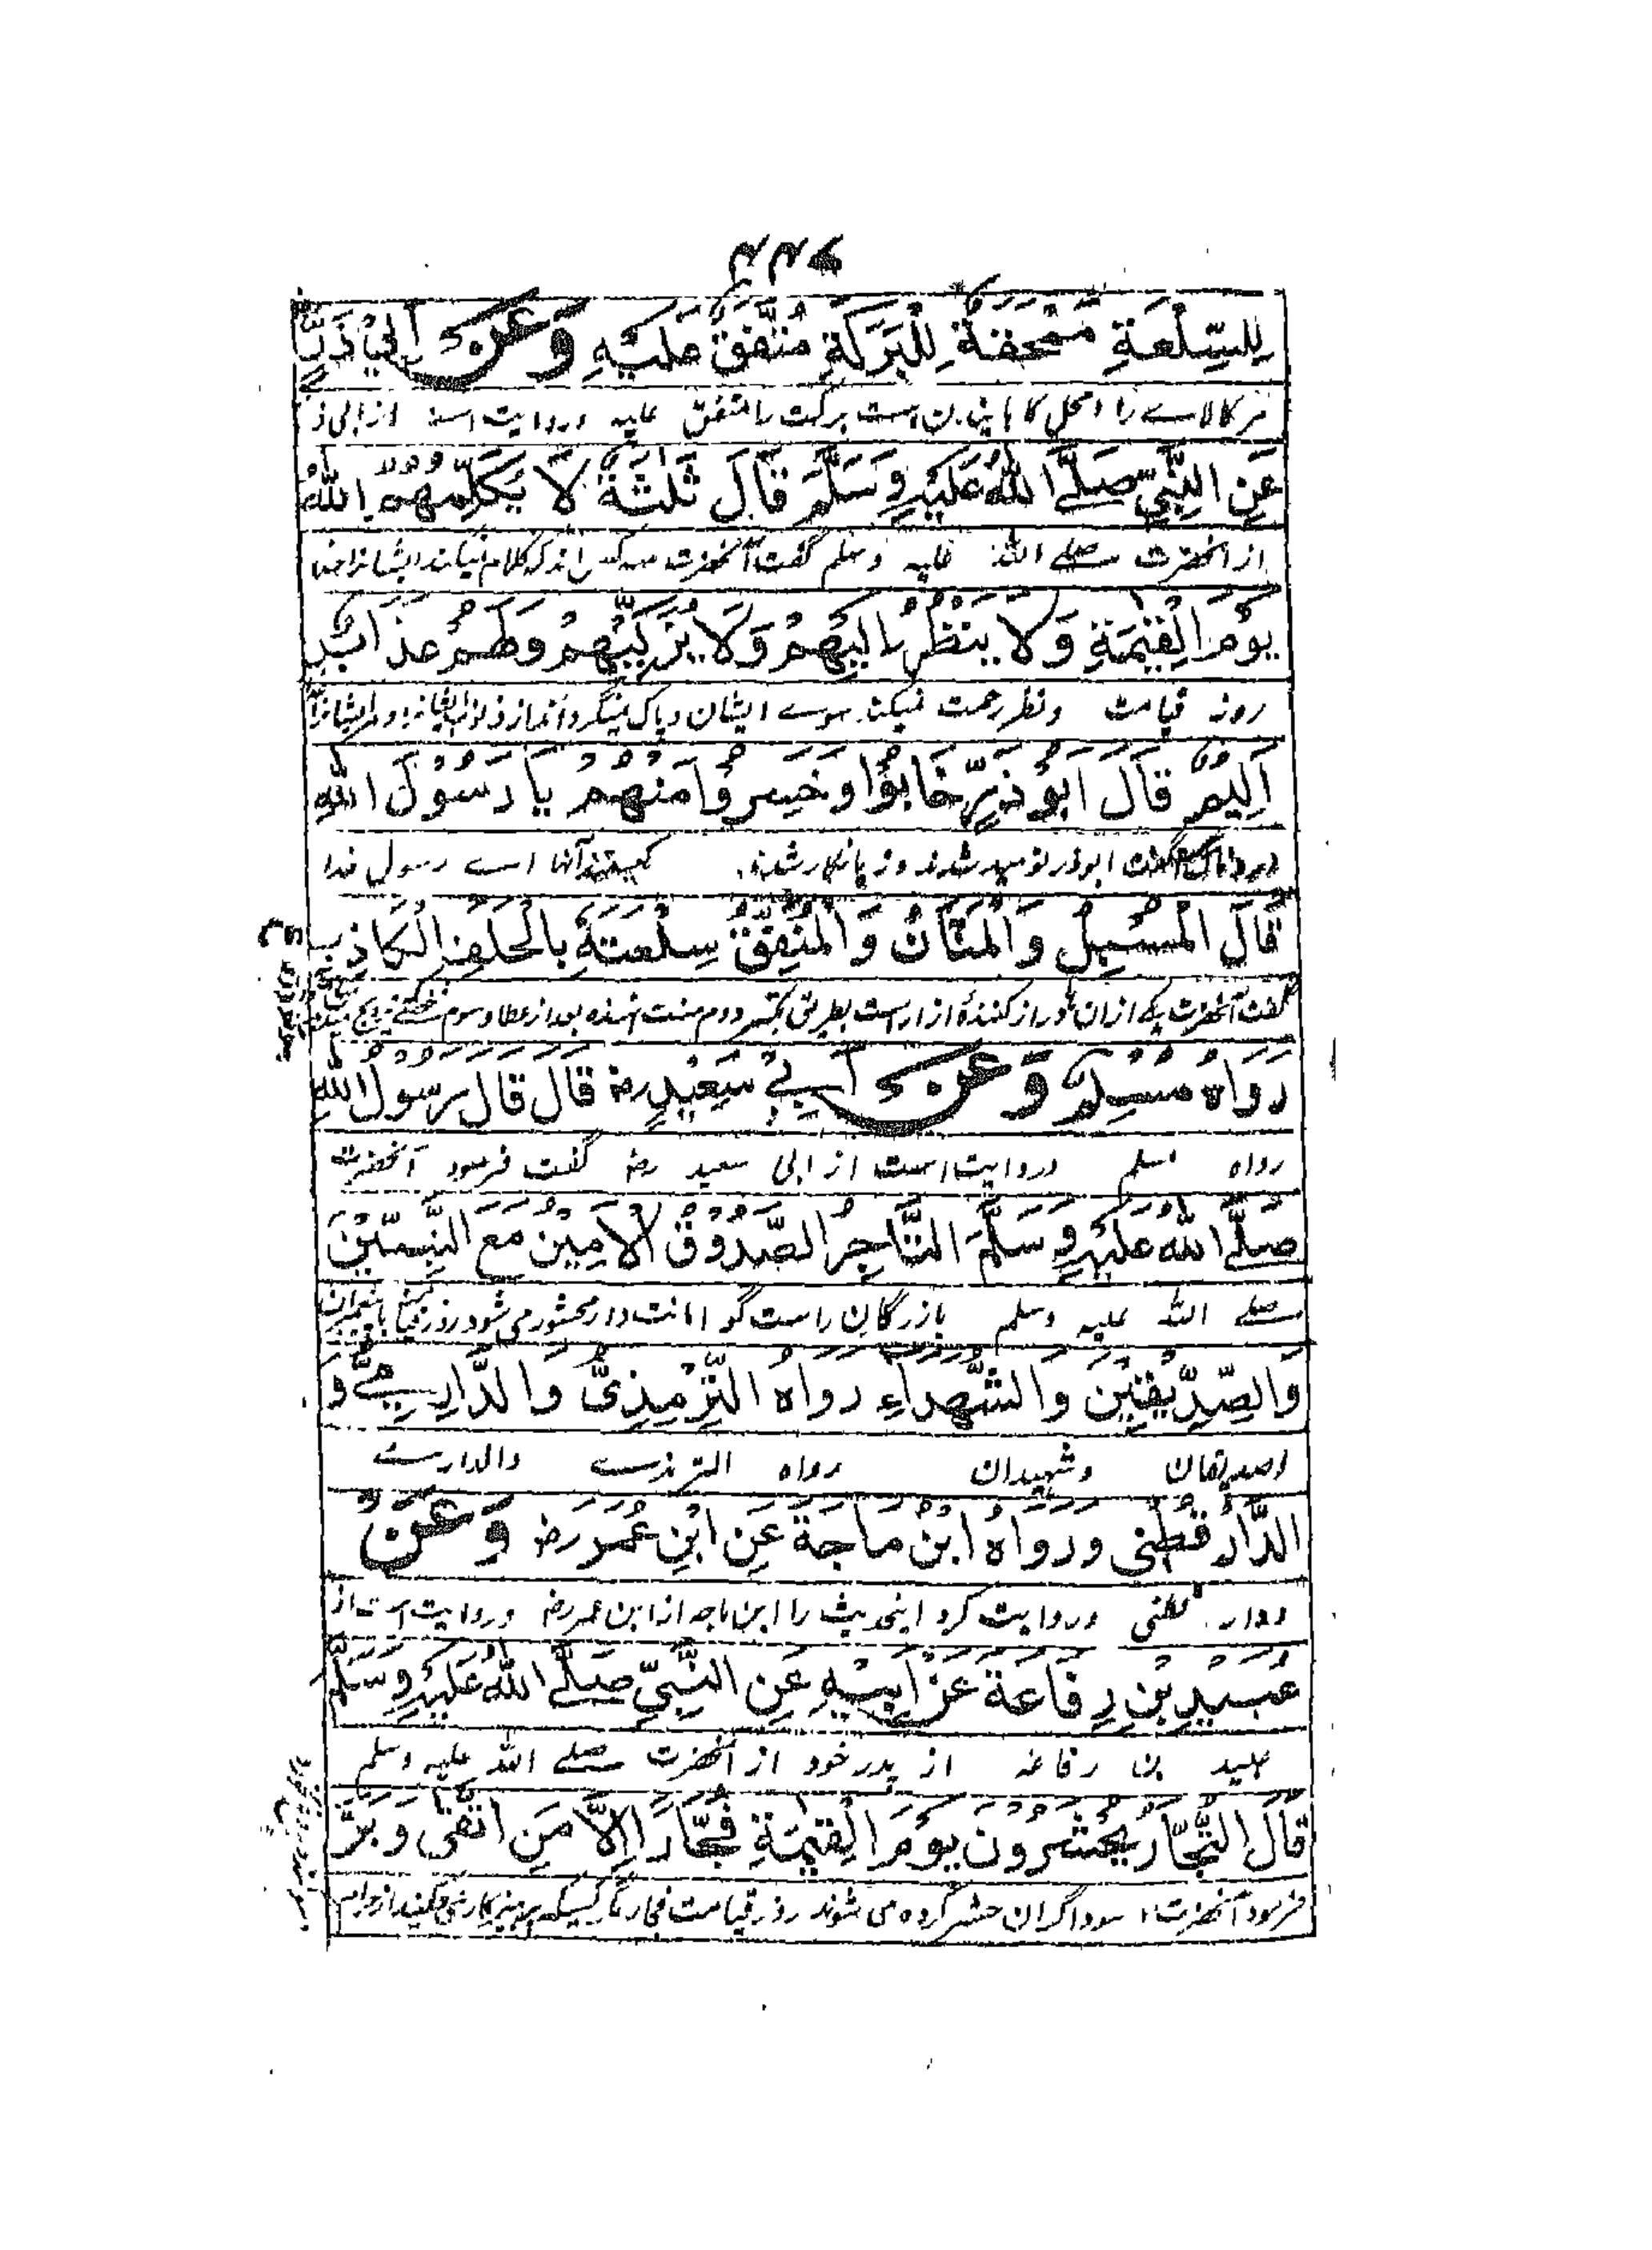 للسِّلْعَةِ مَمْحَقَةٌ لِلْبَرَكَةِ مُتَّفَقٌ عَلَيْهِ وَعَنْ اَبِيْ ذَرٍّ
را متفق علیه و روایت است از ابی ذر
عَنِ النَّبِيِّ صَلَّى اللهُ عَلَيْهِ وَسَلَّمَ قَالَ ثَلٰثَةٌ لَا يُكَلِّمُهُمُ اللهُ
از آنحضرت صلے اللہ علیه وسلم گفت آنحضرت سه کس اند که کلام نیکند ایشانرا خدا
يَوْمَ الْقِيٰمَةِ وَلَا يَنْظُرُ اِلَيْهِمْ وَلَا يُزَكِّيْهِمْ وَلَهُمْ عَذَابٌ
روز قیامت و نظر رحمت نیکند بسوے ایشان و پاک
اَلِيْمٌ قَالَ اَبُوْ ذَرٍّ خَابُوْا وَخَسِرُوْا مَنْ هُمْ يَا رَسُوْلَ اللهِ
دردناک گفت ابوذر نومید شدند و زیانکار شدند کیستند آنها اے رسول خدا
قَالَ الْمُسْبِلُ وَالْمَنَّانُ وَالْمُنَفِّقُ سِلْعَتَهُ بِالْحَلِفِ الْكَاذِبِ
گفت آنحضرت یکے ازان دراز کنندۂ ازار است بطریق تکبر دوم منت نهنده بعد از عطا و سوم
رَوَاهُ مُسْلِمٌ وَعَنْ اَبِيْ سَعِيْدٍ رض قَالَ قَالَ رَسُوْلُ اللهِ
رواه مسلم و روایت است از ابی سعید رض گفت فرمود آنحضرت
صَلَّى اللهُ عَلَيْهِ وَسَلَّمَ التَّاجِرُ الصَّدُوْقُ الْاَمِيْنُ مَعَ النَّبِيِّيْنَ
صلے اللہ علیه وسلم بازرگان راست گو امانت دار محشور می شود روز قیامت با پیغمبران
وَالصِّدِّيْقِيْنَ وَالشُّهَدَاءِ رَوَاهُ التِّرْمِذِيُّ وَالدَّارِمِيُّ وَ
و صدیقان و شهیدان رواه الترمذے والدارمے
الدَّارُقُطْنِى وَرَوَاهُ ابْنُ مَاجَةَ عَنِ ابْنِ عُمَرَ رض وَعَنْ
و دار قطنی و روایت کرد اینحدیث را ابن ماجه از ابن عمر رض و روایت است از
عُبَيْدِ بْنِ رِفَاعَةَ عَنْ اَبِيْهِ عَنِ النَّبِيِّ صَلَّى اللهُ عَلَيْهِ وَسَلَّمَ
عبید بن رفاعه از پدر خود از آنحضرت صلے اللہ علیه وسلم
قَالَ التُّجَّارُ يُحْشَرُوْنَ يَوْمَ الْقِيٰمَةِ فُجَّارًا اِلَّا مَنِ اتَّقٰى وَبَرَّ
فرمود آنحضرت سوداگران حشر کرده می شوند روز قیامت فجار مگر کسیکه پرهیزگاری میکند از حرام